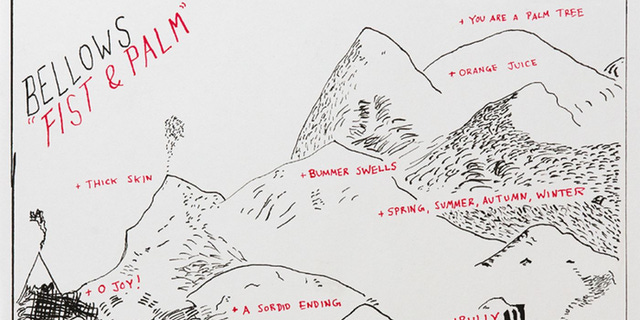 BELLOWS
"FIST & PALM"
+ YOU ARE A PALM TREE
+ ORANGE JUICE
+ THICK SKIN
+ BUMMER SWELLS
+ SPRING, SUMMER, AUTUMN, WINTER
+ O JOY!
+ A SORDID ENDING